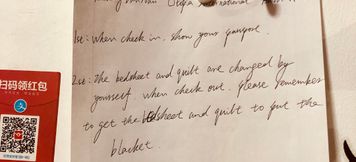 International
1st: When check in. Show your passport.
2st: The bedsheet and quilt are changed by
yourself. when check out. Please remember
to get the bedsheet and quilt to put the
blacket.
扫码领红包